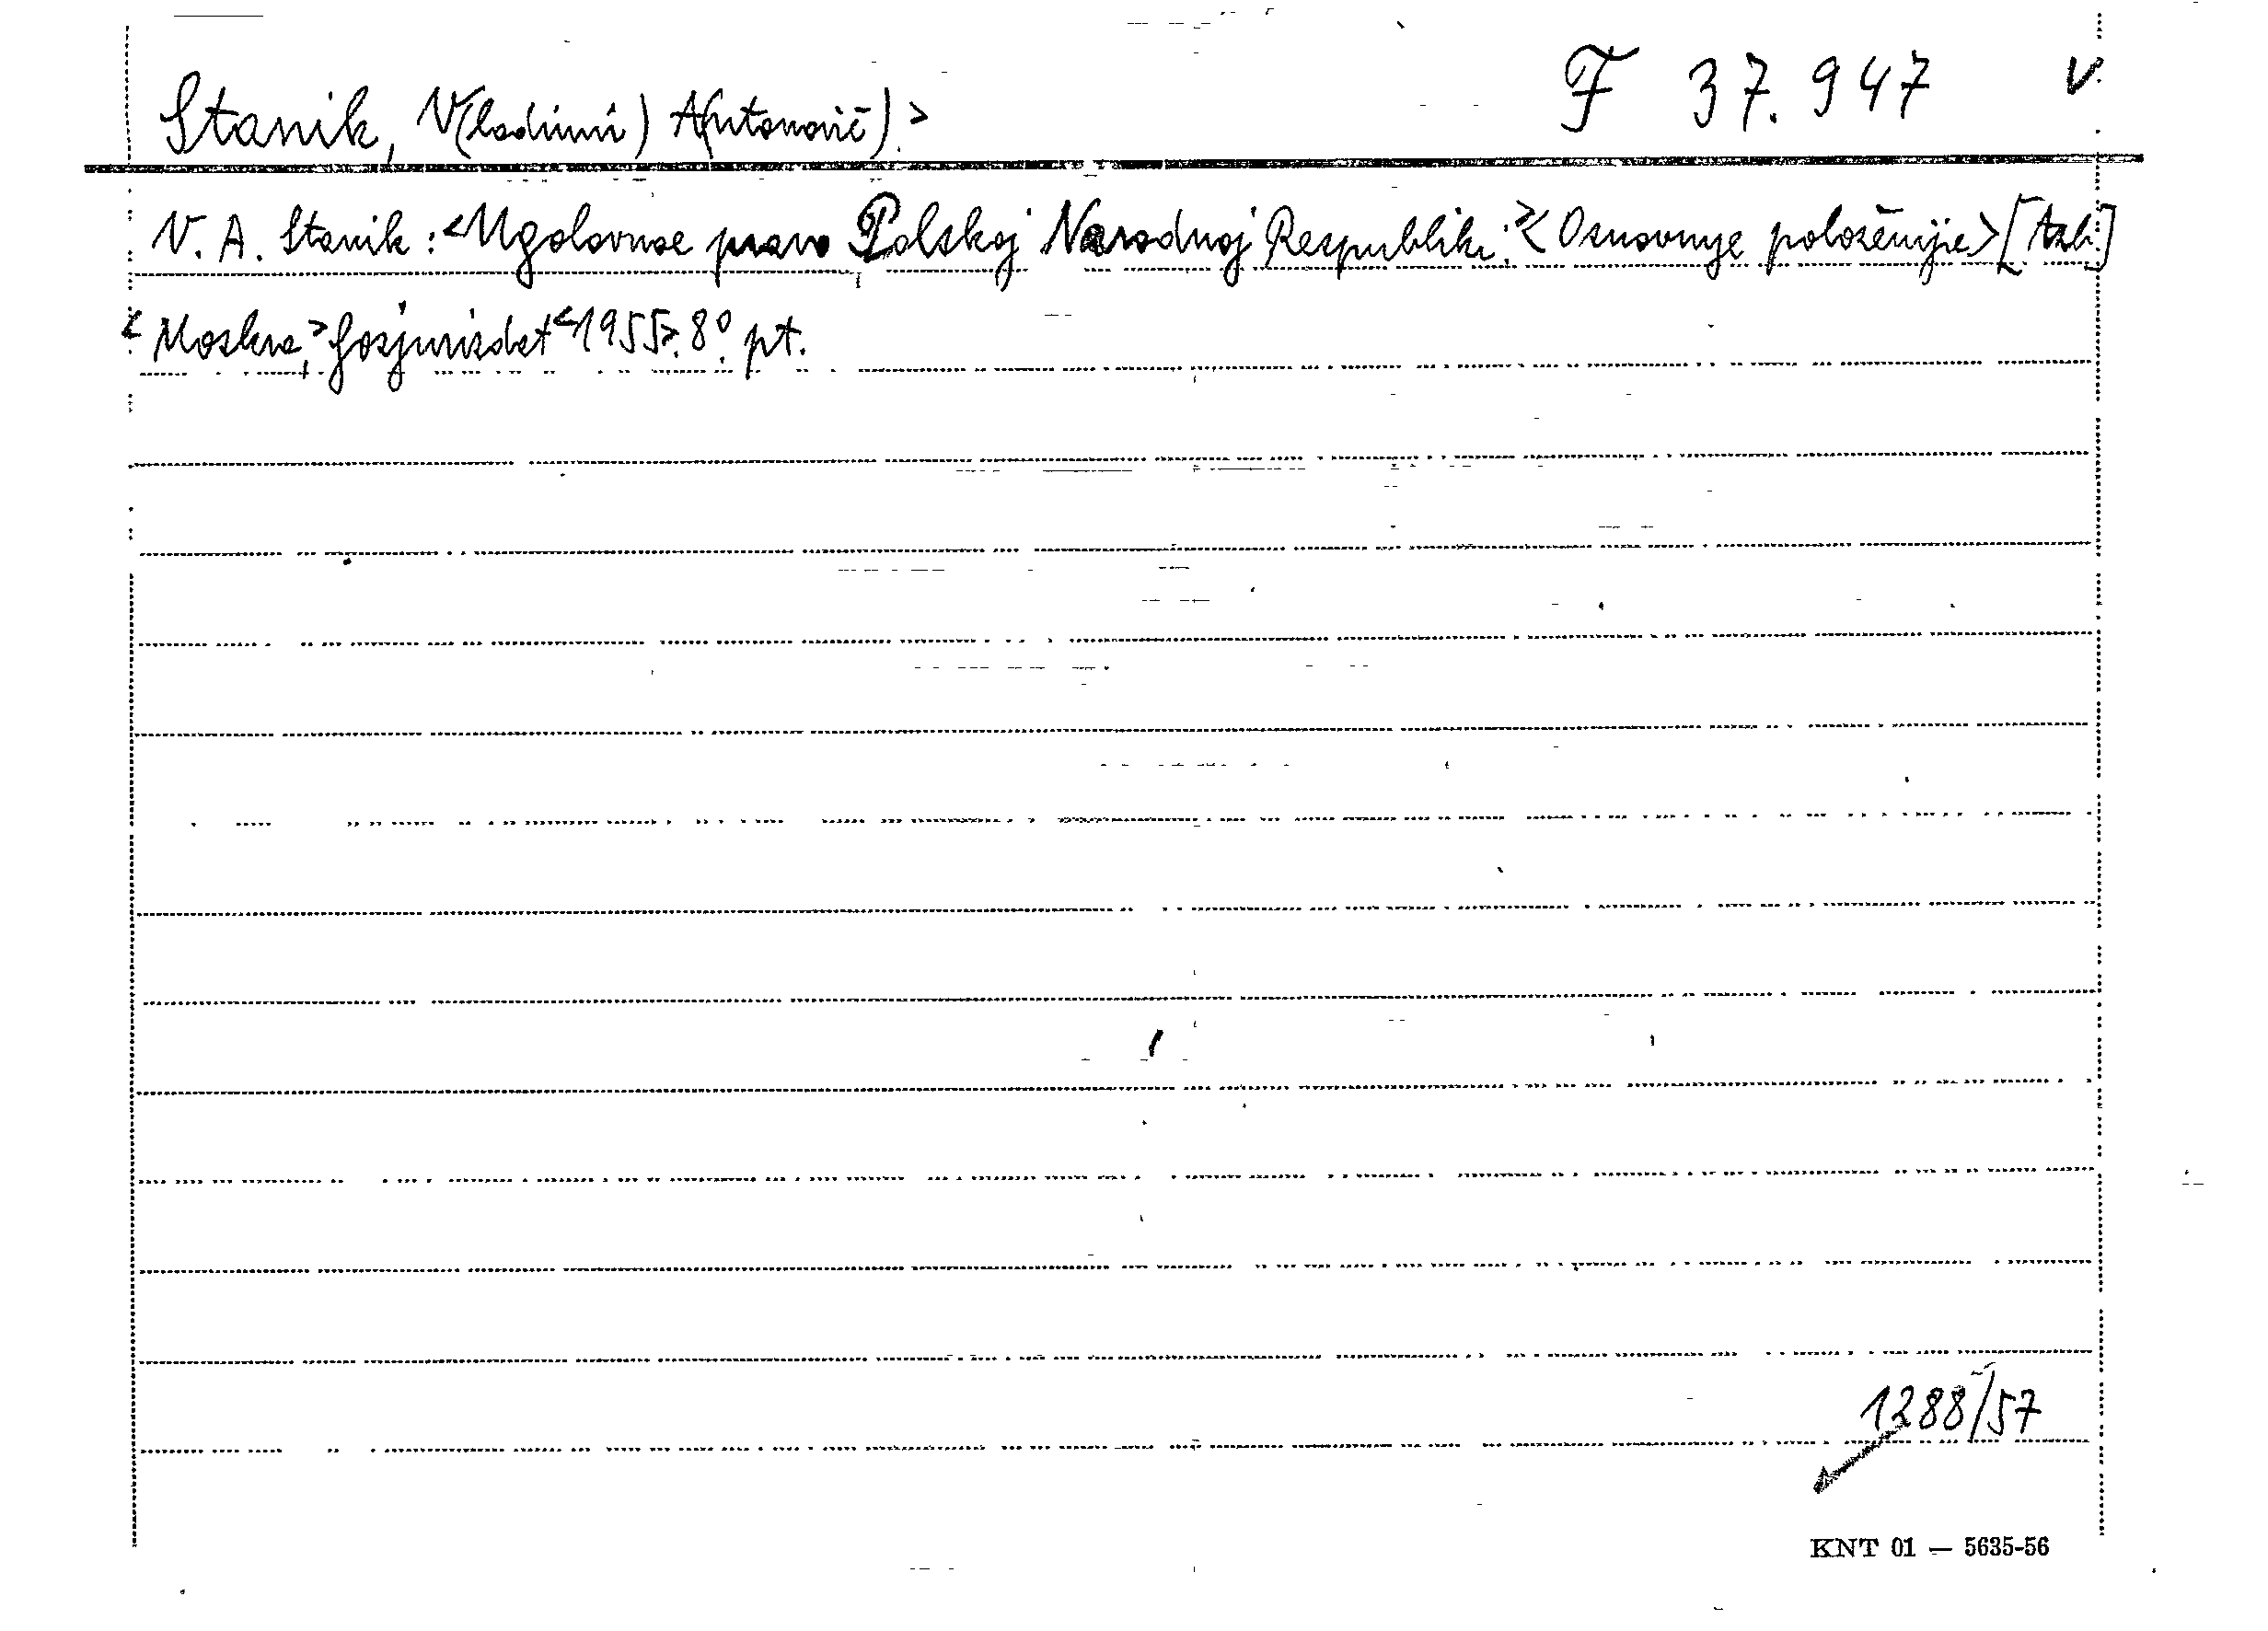 Stanik, V(ladimir) A(ntonovič).> F 37.947 v.
V. A. Stanik: <Ugolovnoe pravo Polskoj Narodnoj Respubliki.> <Osnovnye položenije> [Azb.]
<Moskva,> Gosjurizdat <1955>. 8°. pt.
1288/57
KNT 01 — 5635-56